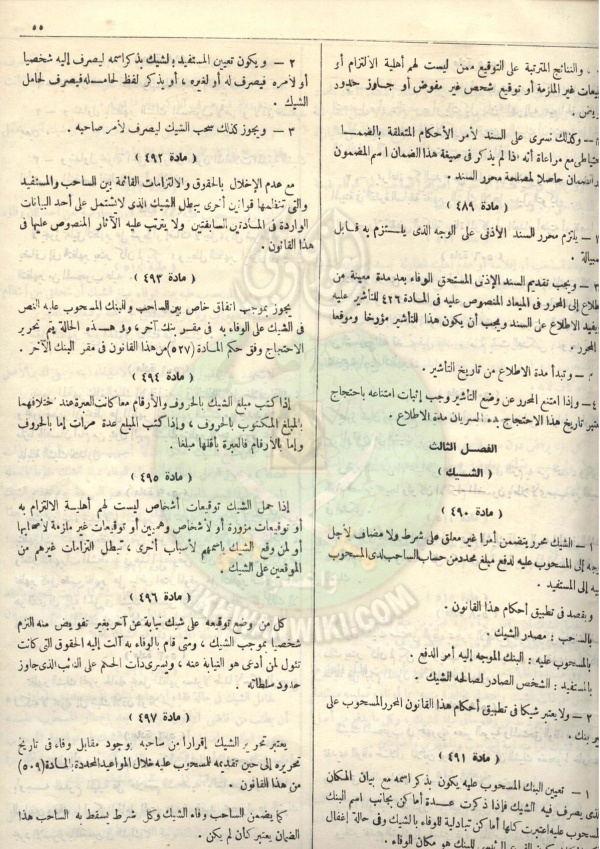 ٥٥
، والنتائج المترتبة على التوقيع ممن ليست لهم أهلية الالتزام أو
غير الملزمة أو توقيع شخص غير مفوض أو جاوز حدود
وكذلك تسرى على السند لأمر الأحكام المتعلقة بالضمان
مع مراعاة أنه اذا لم يذكر فى صيغة هذا الضمان اسم المضمون
الضمان حاصلا لمصلحة محرر السند .
( مادة ٤٨٩ )
يلتزم محرر السند الأذنى على الوجه الذى يلتزم به قابل
– ويجب تقديم السند الإذنى المستحق الوفاء بعد مدة معينة من
إطلاع إلى المحرر فى الميعاد المنصوص عليه فى المادة ٤٢٦ للتأشير عليه
يفيد الاطلاع على السند ويجب أن يكون هذا التأشير مؤرخا وموقعا
المحرر .
– وتبدأ مدة الاطلاع من تاريخ التأشير .
٤ – وإذا امتنع المحرر عن وضع التأشير وجب إثبات امتناعه باحتجاج
تاريخ هذا الاحتجاج بدء السريان مدة الاطلاع .
الفصل الثالث
( الشيك )
( مادة ٤٩٠ )
١ – الشيك محرر يتضمن أمرا غير معلق على شرط ولا مضاف لأجل
إلى المسحوب عليه لدفع مبلغ محدد من حساب الساحب لدى المسحوب
إلى المستفيد .
ويقصد فى تطبيق أحكام هذا القانون .
بالساحب : مصدر الشيك .
بالمسحوب عليه : البنك الموجه إليه أمر الدفع .
بالمستفيد : الشخص الصادر لصالحه الشيك .
٢ – ولا يعتبر شيكا فى تطبيق أحكام هذا القانون المحرر المسحوب على
بنك .
( مادة ٤٩١ )
١ – تعيين البنك المسحوب عليه يكون بذكر اسمه مع بيان المكان
الذى يصرف فيه الشيك فإذا ذكرت عدة أماكن بجانب اسم البنك
عليه اعتبرت كلها أماكن تبادلية للوفاء بالشيك وفى حالة إغفال
للبنك هو مكان الوفاء .
٢ – ويكون تعيين المستفيد بالشيك بذكر اسمه ليصرف إليه شخصيا
أو لأمره فيصرف له أو لغيره ، أو يذكر لفظ لحامله فيصرف لحامل
الشيك .
٣ – ويجوز كذلك سحب الشيك ليصرف لأمر صاحبه .
( مادة ٤٩٢ )
مع عدم الإخلال بالحقوق والالتزامات القائمة بين الساحب والمستفيد
والتى تنظمها قوانين أخرى يبطل الشيك الذى لا يشتمل على أحد البيانات
الواردة فى المادتين السابقتين ولا يترتب عليه الآثار المنصوص عليها فى
هذا القانون .
( مادة ٤٩٣ )
يجوز بموجب اتفاق خاص بين الساحب والبنك المسحوب عليه النص
فى الشيك على الوفاء به فى مقر بنك آخر ، وفى هذه الحالة يتم تحرير
الاحتجاج وفق حكم المادة (٥٢٧) من هذا القانون فى مقر البنك الآخر .
( مادة ٤٩٤ )
إذا كتب مبلغ الشيك بالحروف والأرقام معا كانت العبرة عند خلافهما
بالمبلغ المكتوب بالحروف ، وإذا كتب المبلغ عدة مرات إما بالحروف
وإما بالأرقام فالعبرة بأقلها مبلغا .
( مادة ٤٩٥ )
إذا حمل الشيك توقيعات أشخاص ليست لهم أهلية الالتزام به
أو توقيعات مزورة أو لأشخاص وهميين أو توقيعات غير ملزمة لأصحابها
أو لمن وقع الشيك باسمهم لأسباب أخرى ، تبطل التزامات غيرهم من
الموقعين على الشيك .
( مادة ٤٩٦ )
كل من وضع توقيعه على شيك نيابة عن آخر بغير تفويض منه التزم
شخصيا بموجب الشيك ، ومتى قام بالوفاء به آلت إليه الحقوق التى كانت
تئول لمن أدعى هو النيابة عنه ، ويسرى ذات الحكم على النائب الذى جاوز
حدود سلطاته .
( مادة ٤٩٧ )
يعتبر تحرير الشيك إقرارا من صاحبه بوجود مقابل وفاء فى تاريخ
تحريره إلى حين تقديمه للمسحوب عليه خلال المواعيد المحددة بالمادة (٥٠٩)
من هذا القانون .
كما يضمن الساحب وفاء الشيك وكل شرط يسقط به الساحب هذا
الضمان يعتبر كأن لم يكن .
IKHWANWIKI.COM